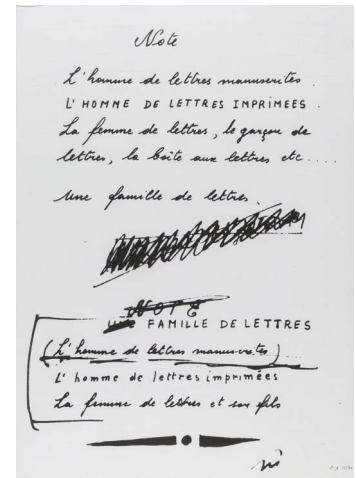 Note
L'homme de lettres manuscrites.
L'HOMME DE LETTRES IMPRIMEES.
La femme de lettres, le garçon de
lettres, la boîte aux lettres etc....
Une famille de lettres.
NOTE
UNE FAMILLE DE LETTRES
(L'homme de lettres manuscrites)
L'homme de lettres imprimées
La femme de lettres et son fils